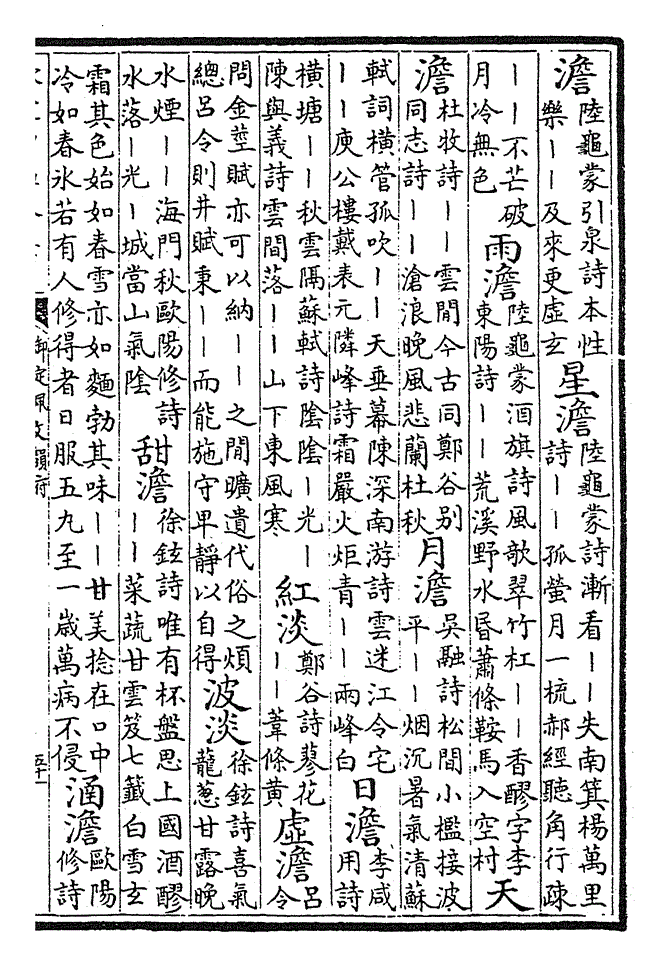 澹陸龜蒙引泉詩本性樂丨丨及來更虛玄星澹陸龜蒙詩漸看丨丨失南箕楊萬里詩丨丨孤螢月一梳郝經聽角行疎
丨丨不芒破月冷無色雨澹陸龜蒙酒旗詩風歌翠竹杠丨丨香醪字李東陽詩丨丨荒溪野水昏蕭條鞍馬入空村天
澹杜牧詩丨丨雲閒今古同鄭谷别同志詩丨丨滄浪晚風悲蘭杜秋月澹吳融詩松間小檻接波平丨丨烟沉暑氣清蘇
軾詞橫管孤吹丨丨天垂幕陳深南游詩雲迷江令宅丨丨庾公樓戴表元隣峰詩霜嚴火炬青丨丨兩峰白日澹李咸用詩
橫塘丨丨秋雲隔蘇軾詩陰陰丨光丨陳與義詩雲間落丨丨山下東風寒紅淡鄭谷詩蓼花丨丨葦條黄虛澹呂令
問金莖賦亦可以納丨丨之間曠遺代俗之煩總呂令則井賦秉丨丨而能施守卑靜以自得波淡徐鉉詩喜氣蘢蔥甘露晚
水煙丨丨海門秋歐陽修詩水落丨光丨城當山氣陰甜澹徐鉉詩唯有杯盤思上國酒醪丨丨菜蔬甘雲笈七籤白雪玄
霜其色始如春雪亦如麵勃其味丨丨甘美捻在口中冷如春氷若有人修得者日服五九至一歳萬病不侵涵澹歐陽修詩
御定佩文韻府